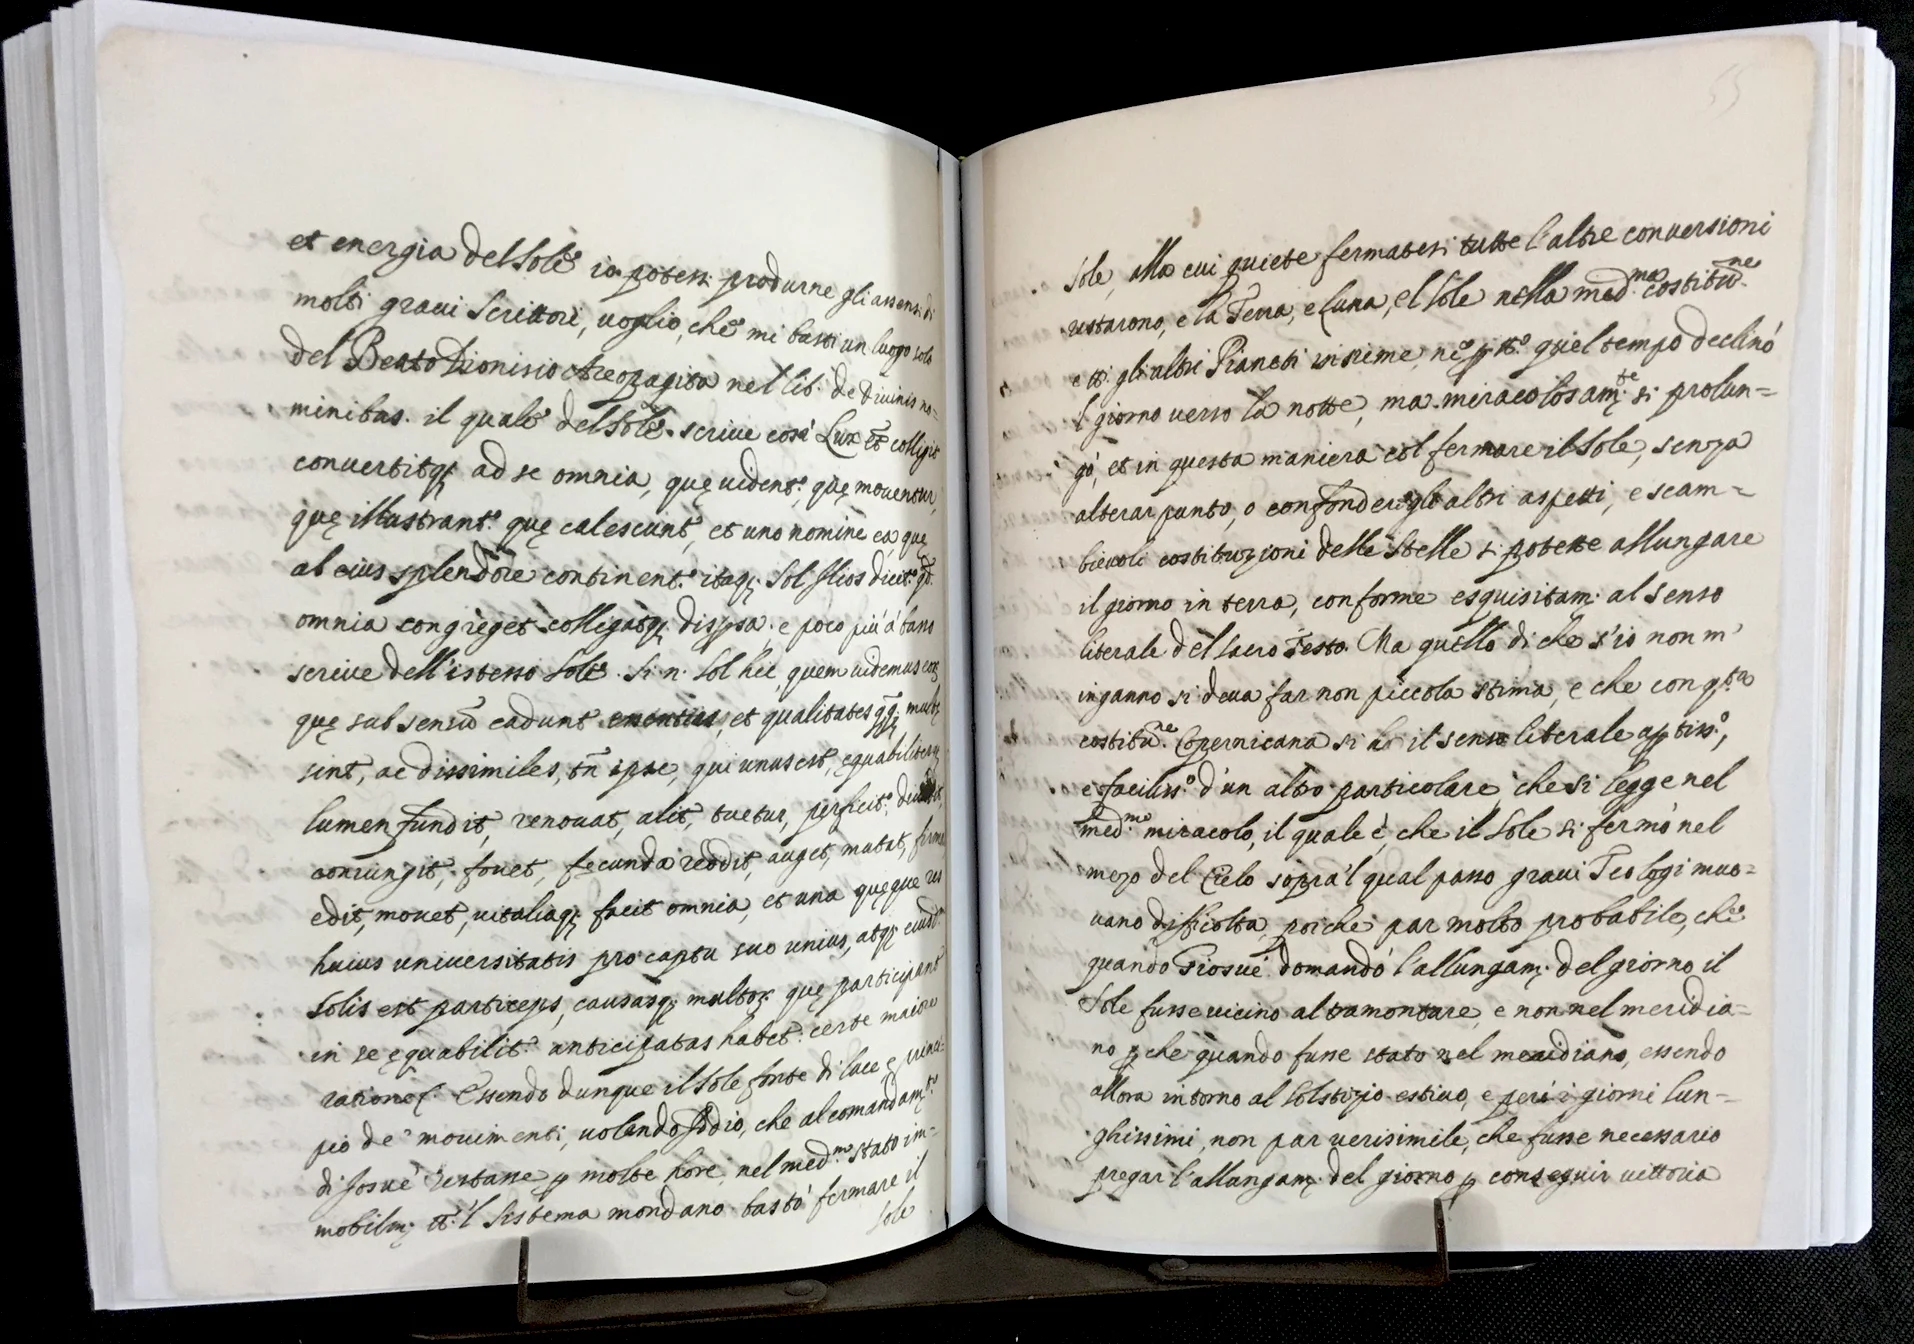 et energia del Sole io potessi produrne gli assensi di
molti gravi Scrittori, voglio, che mi basti un luogo solo
del Beato Dionisio Areopagita nel lib: de Divinis no=
minibus. il quale del Sole scrive così Lux et colligit
convertitq; ad se omnia, quę vident: quę moventur,
quę illustrant: quę calescunt, et uno nomine ea, quę
ab eius splendore continent: itaq; Sol Ilios dicit: qd̄
omnia congreget colligatq; dispsa. e poco più à basso
scrive dell'istesso Sole. Si n. Sol hic, quem videmus eoꝝ
quę sub sensū cadunt essentias, et qualitates qq; multę
sint, ac dissimiles, tn̄ ipse, qui unus est, ęquabiliterq;
lumen fundit, renovat, alit, tuetur, perficit,
coniungit, fovet, fęcunda reddit, auget, mutat, firmat,
edit, movet, vitaliaq; facit omnia, et una quęque res
huius universitatis pro captu suo unius, atq; eiusd:
Solis est particeps, causasq; multoꝝ quę participant
in se ęquabilit: anticipatas habet: certe maiore
ratione ꝛ: Essendo dunque il Sole fonte di luce, e princi=
pio de' movimenti, volendo Iddio, che al comandamto
di Josuè restasse p molte hore, nel medmo stato im=
mobilmte tt: 'l Sistema mondano bastò fermare il
Sole
55
Sole, alla cui quiete fermatesi tutte l'altre conversioni
restarono, e la Terra, e Luna, e'l Sole nella medma costitune
e tti gli altri Pianeti insieme, nè p tto quel tempo declinò
'l giorno verso la notte, ma miracolosamte si prolun=
gò, et in questa maniera col fermare il Sole, senza
alterar punto, o confonder gli altri aspetti, e scam=
bievoli costituzioni delle Stelle si potette allungare
il giorno in terra, conforme esquisitam: al senso
literale del sacro Testo. Ma quello di che s'io non m'
inganno si deva far non piccola stima, e che con qsta
costitune Copernicana si ha il senso literale aptiss°,
e faciliss° d'un altro particolare che si legge nel
medmo miracolo, il quale è, che il Sole si fermò nel
mezo del Cielo sopra 'l qual passo gravi Teologi muo=
vano difficoltà, poiche par molto probabile, che
quando Giosuè domandò l'allungam: del giorno, il
Sole fusse vicino al tramontare, e non nel meridia=
no pche quando fusse stato nel meridiano, essendo
allora intorno al Solstizio estivo, e però i giorni lun=
ghissimi, non par verisimile, che fusse necessario
pregar l'allungam: del giorno p conseguir vittoria